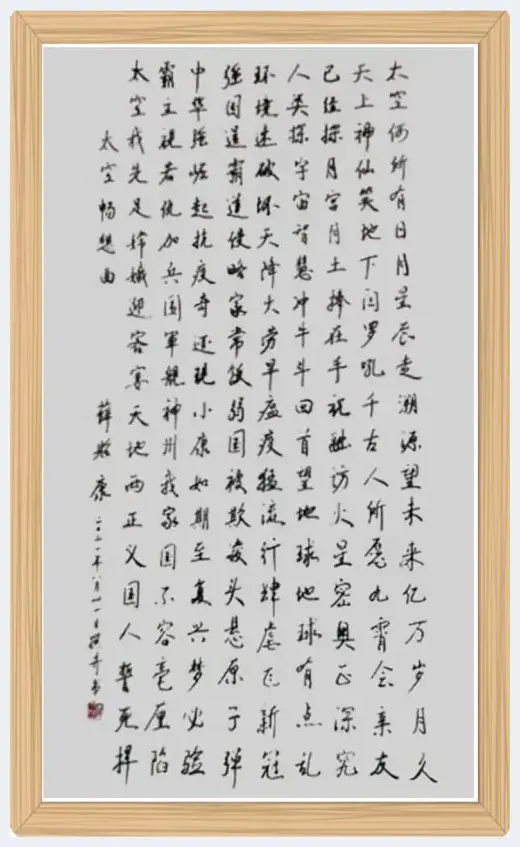 太空何所有日月星辰走溯源望未来亿万岁月久
天上神仙笑地下闫罗吼千古人所愿九霄会亲友
已经探月宫月土捧在手祝融访火星密奥正深究
人类探宇宙智慧冲牛斗回首望地球地球有点乱
环境遭破坏天降大涝旱瘟疫猛流行肆虐飞新冠
强国逞霸道侵略家常饭弱国被欺凌头悬原子弹
中华强崛起抗疫奇迹现小康如期至复兴梦必验
霸主视为仇加兵围军舰神州我家园不容毫厘陷
太空我先足嫦娥迎客寨天地两正义国人誓死捍
太空畅想曲
薛 康 二〇二一年八月廿一日撰并书